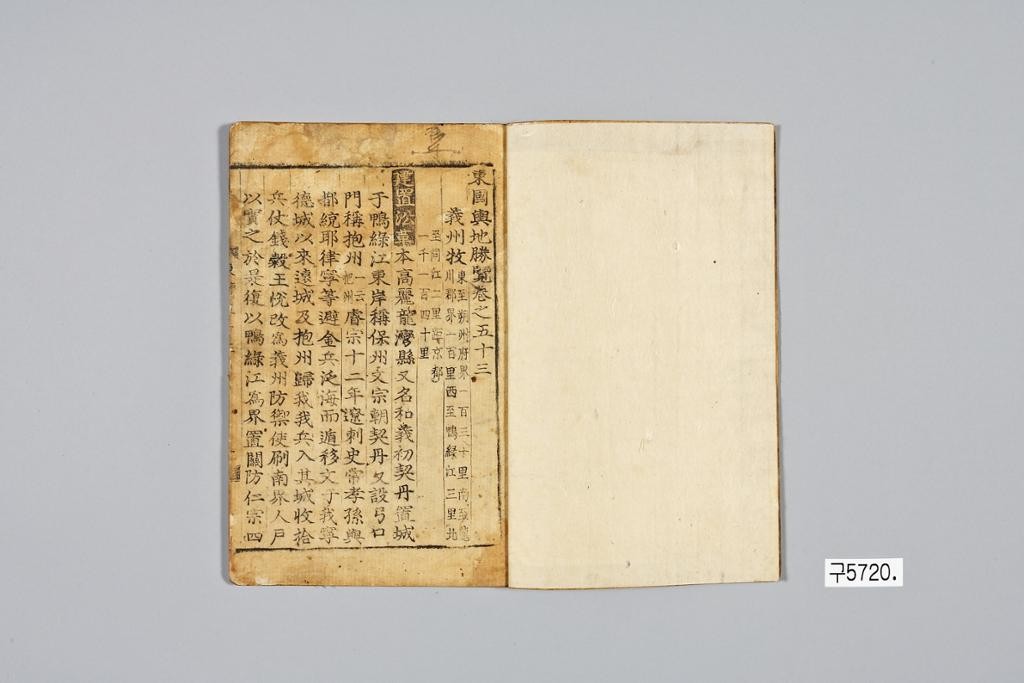 東國輿地勝覽卷之五十三
義州牧東至朔州府界一百三十里南至龍
川郡界一百里西至鴨綠江三里北
至同江二里距京都
一千一百四十里
建置沿革本高麗龍灣縣又名和義初契丹置城
于鴨綠江東岸稱保州文宗朝契丹又設弓口
門稱抱州一云把州睿宗十二年遼刺史常孝孫與
都統耶律寧等避金兵泛海而遁移文于我寧
德城以來遠城及抱州歸我我兵入其城收拾
兵仗錢穀王悅改爲義州防禦使刷南界人戶
以實之於是復以鴨綠江爲界置關防仁宗四
구5720.